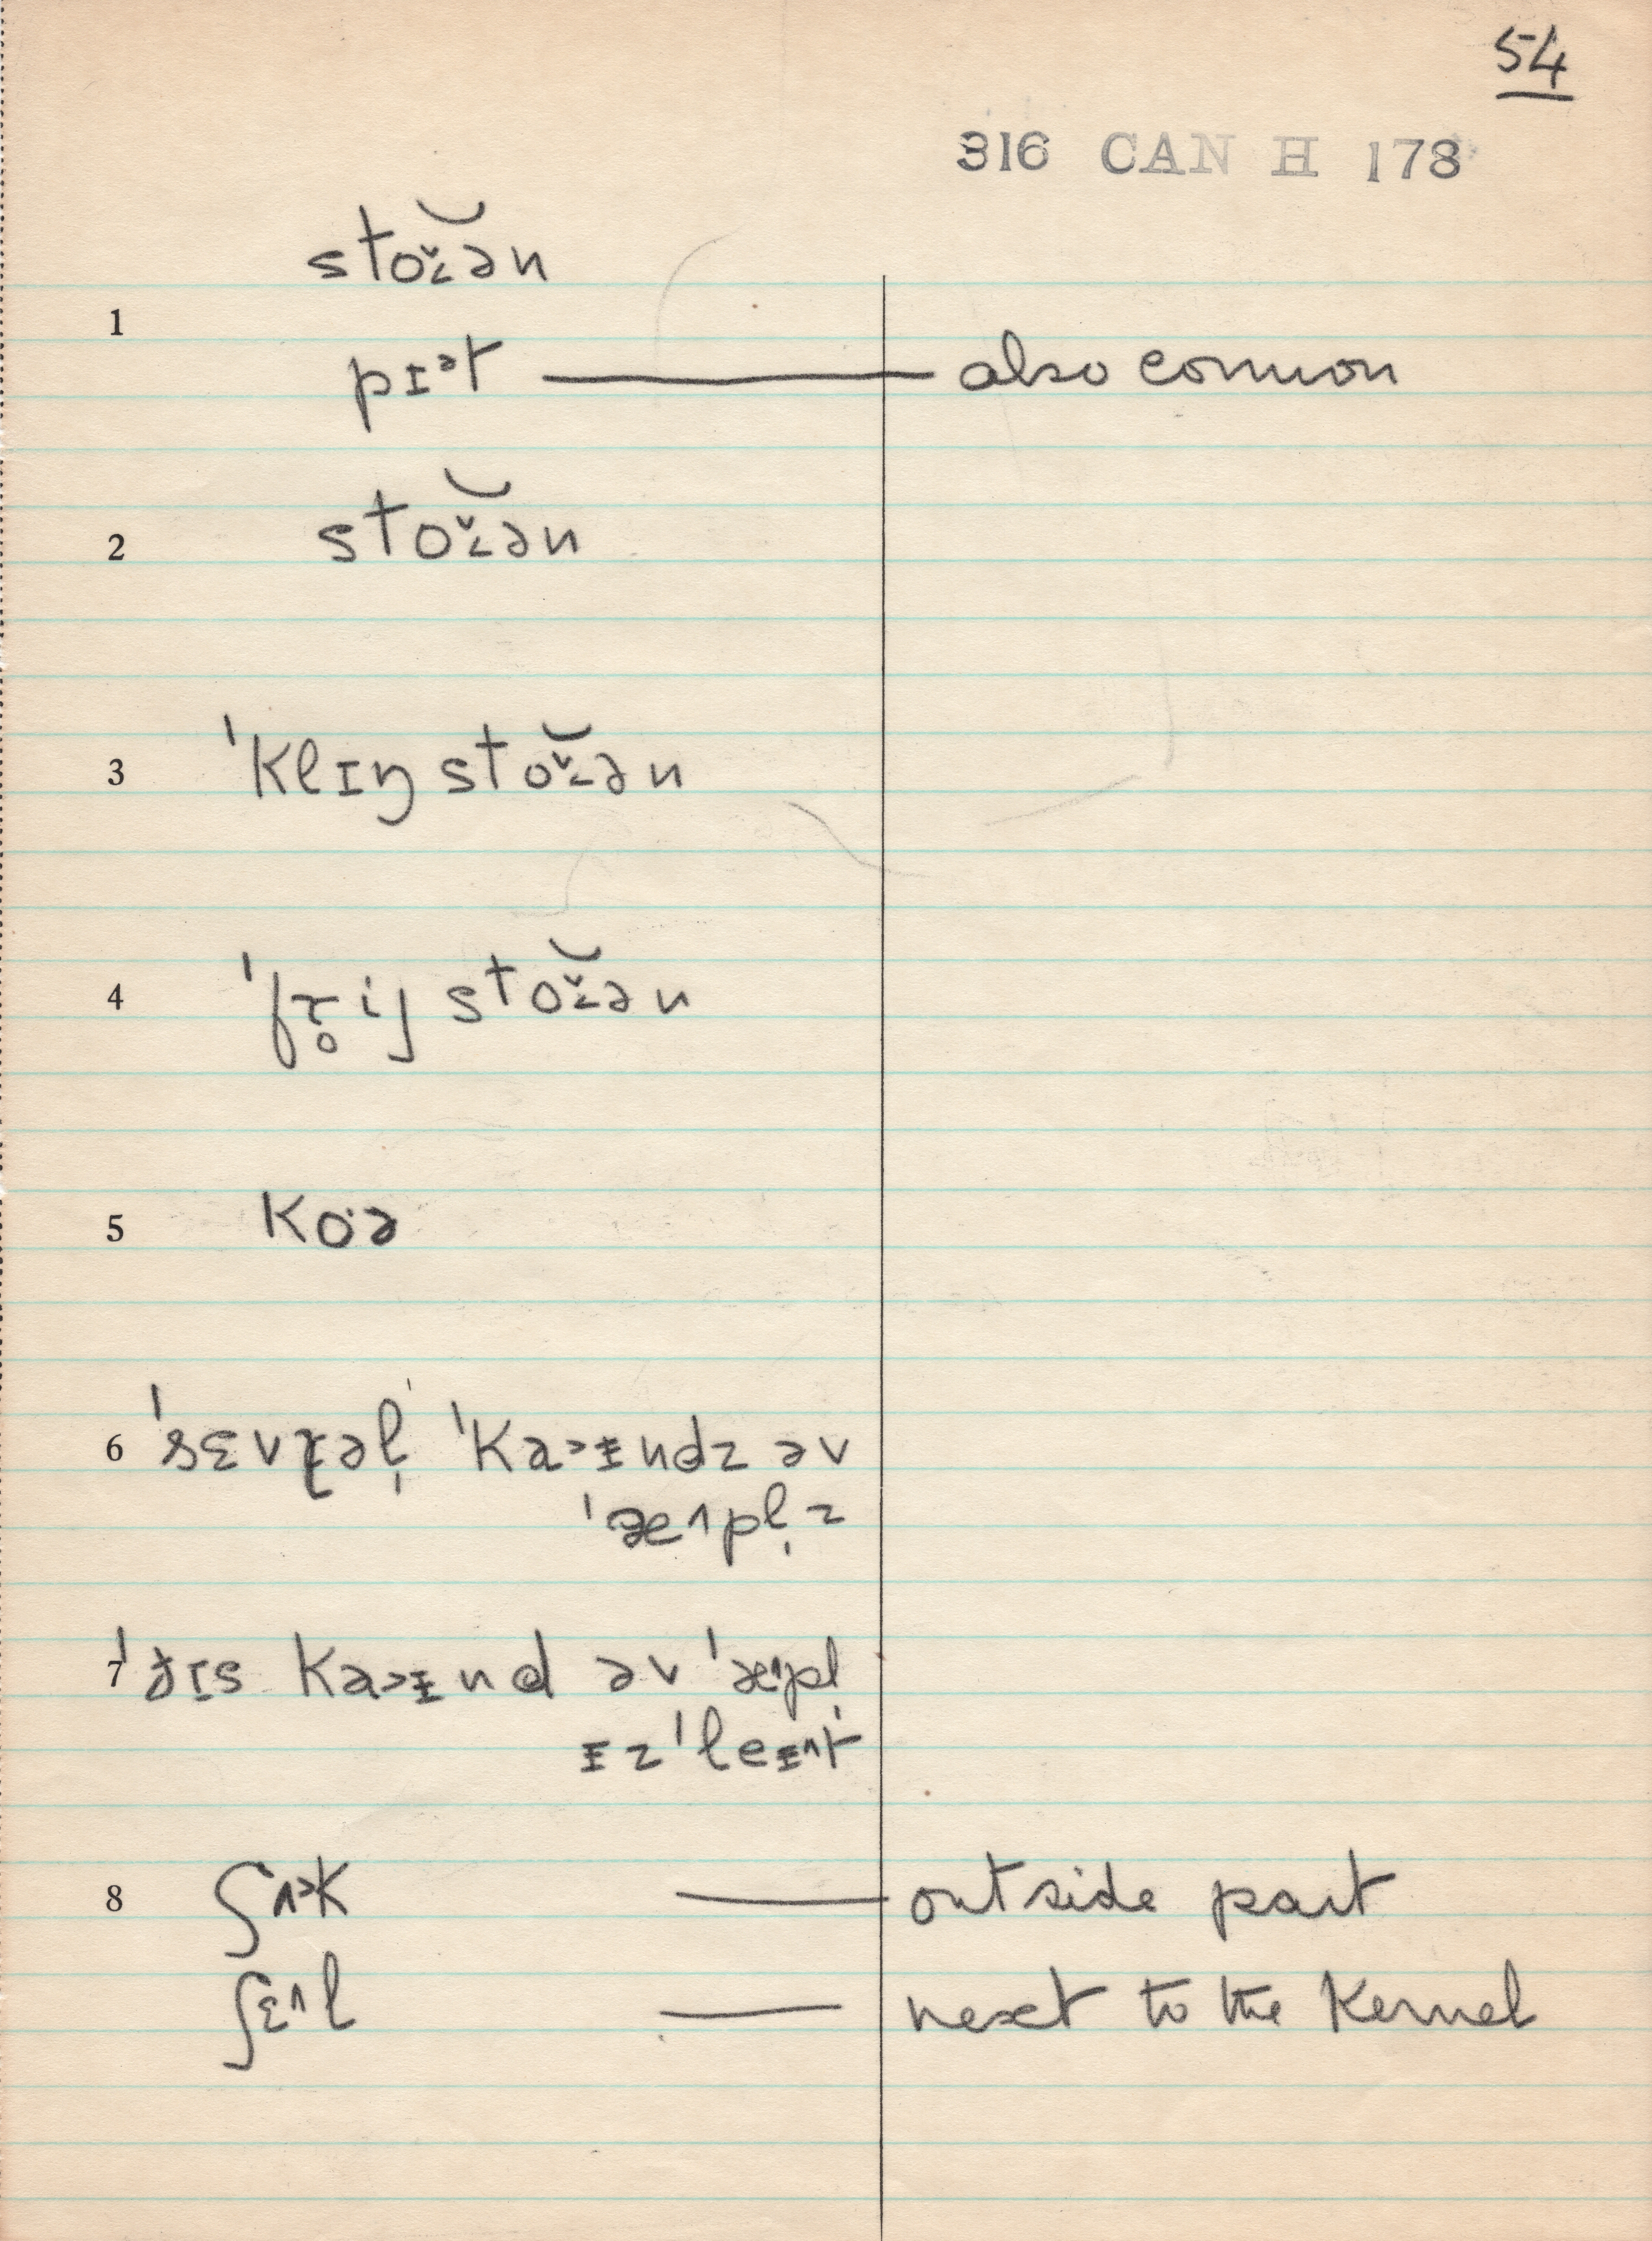 54
316 CAN H 178
sto̬ˇən
1
pɪ˃t — also common
2 sto̬ˇən
3 ˈklɪŋ stoˇən
4 ˈfɾ̥ij stoˇən
5 ko·ə
6 ˈsɛvɾəl̩ ˈka˃ɪndz əv
ˈæ^pl̩z
7 ˈðɪs ka˃ɪnd əv ˈæ^pl̩
ɪz ˈleɪ^t
8 ʃʌ˃k — outside part
ʃɛ^l — next to the kernel